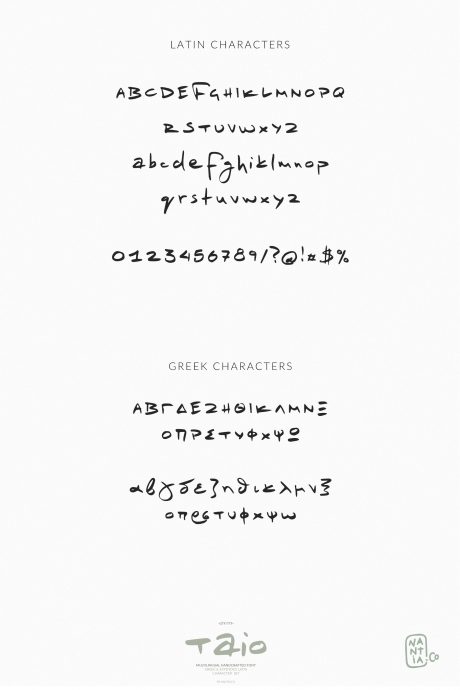 LATIN CHARACTERS
ABCDEFGHIKLMNOPQ
RSTUVWXYZ
abcdefghiklmnop
qrstuvwxyz
0123456789/?@!¤$%
GREEK CHARACTERS
ΑΒΓΔΕΖΗΘΙΚΛΜΝΞ
ΟΠΡΣΤΥΦΧΨΩ
αβγδεζηθικλμνξ
οπρςτυφχψω
Taio
MULTILINGUAL HANDCRAFTED FONT
CHARACTER SET
NANTIA.CO